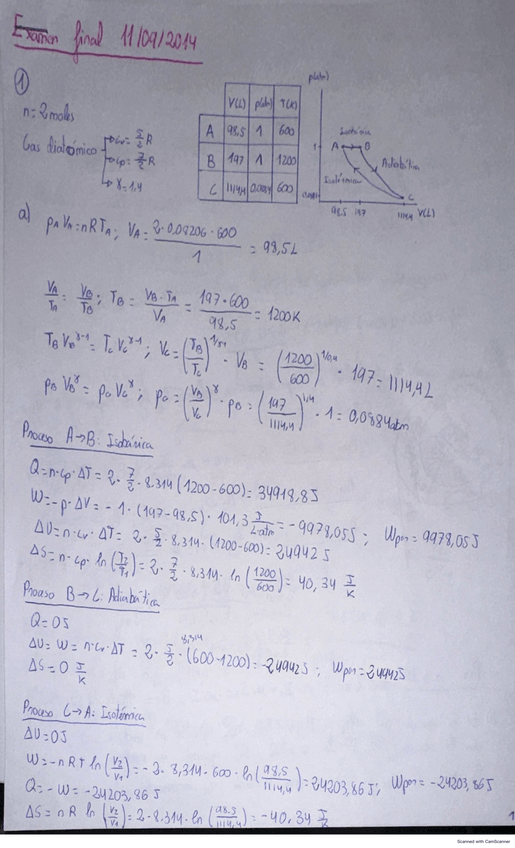 Examen final 11/09/2014
①
n=2 moles
Gas diatómico → cv = 5/2 R
→ cp = 7/2 R
→ γ = 1,4
V(L) p(atm) T(K)
A 98,5 1 600
B 197 1 1200
C 1114,4 0,0884 600
p(atm)
Isobárica
1 A B
Adiabática
Isotérmica
0,0884 C
98.5 197 1114,4 V(L)
a) pA VA = nRTA ; VA = 2·0,08206·600 / 1 = 98,5L
VA/TA = VB/TB ; TB = VB·TA / VA = 197·600 / 98,5 = 1200K
TB VB^γ-1 = TC VC^γ-1 ; VC = (TB/TC)^1/γ-1 · VB = (1200/600)^1/0,4 · 197 = 1114,4L
pB VB^γ = pC VC^γ ; pC = (VB/VC)^γ · pB = (197/1114,4)^1,4 · 1 = 0,0884atm
Proceso A→B: Isobárica
Q = n·cp·ΔT = 2·7/2·8,314 (1200-600) = 34918,8J
W = -p·ΔV = -1·(197-98,5)·101,3 J/L·atm = -9978,05J ; Wpor = 9978,05J
ΔU = n·cv·ΔT = 2·5/2·8,314·(1200-600) = 24942J
ΔS = n·cp ln(T2/T1) = 2·7/2·8,314·ln(1200/600) = 40,34 J/K
Proceso B→C: Adiabática
Q = 0J
ΔU = W = n·cv·ΔT = 2·5/2·8,314(600-1200) = -24942J ; Wpor = 24942J
ΔS = 0 J/K
Proceso C→A: Isotérmica
ΔU = 0J
W = -nRT ln(V2/V1) = -2·8,314·600·ln(98,5/1114,4) = 24203,86J ; Wpor = -24203,86J
Q = -W = -24203,86J
ΔS = nR ln(V2/V1) = 2·8,314·ln(98.5/1114,4) = -40,34 J/K
1
Scanned with CamScanner